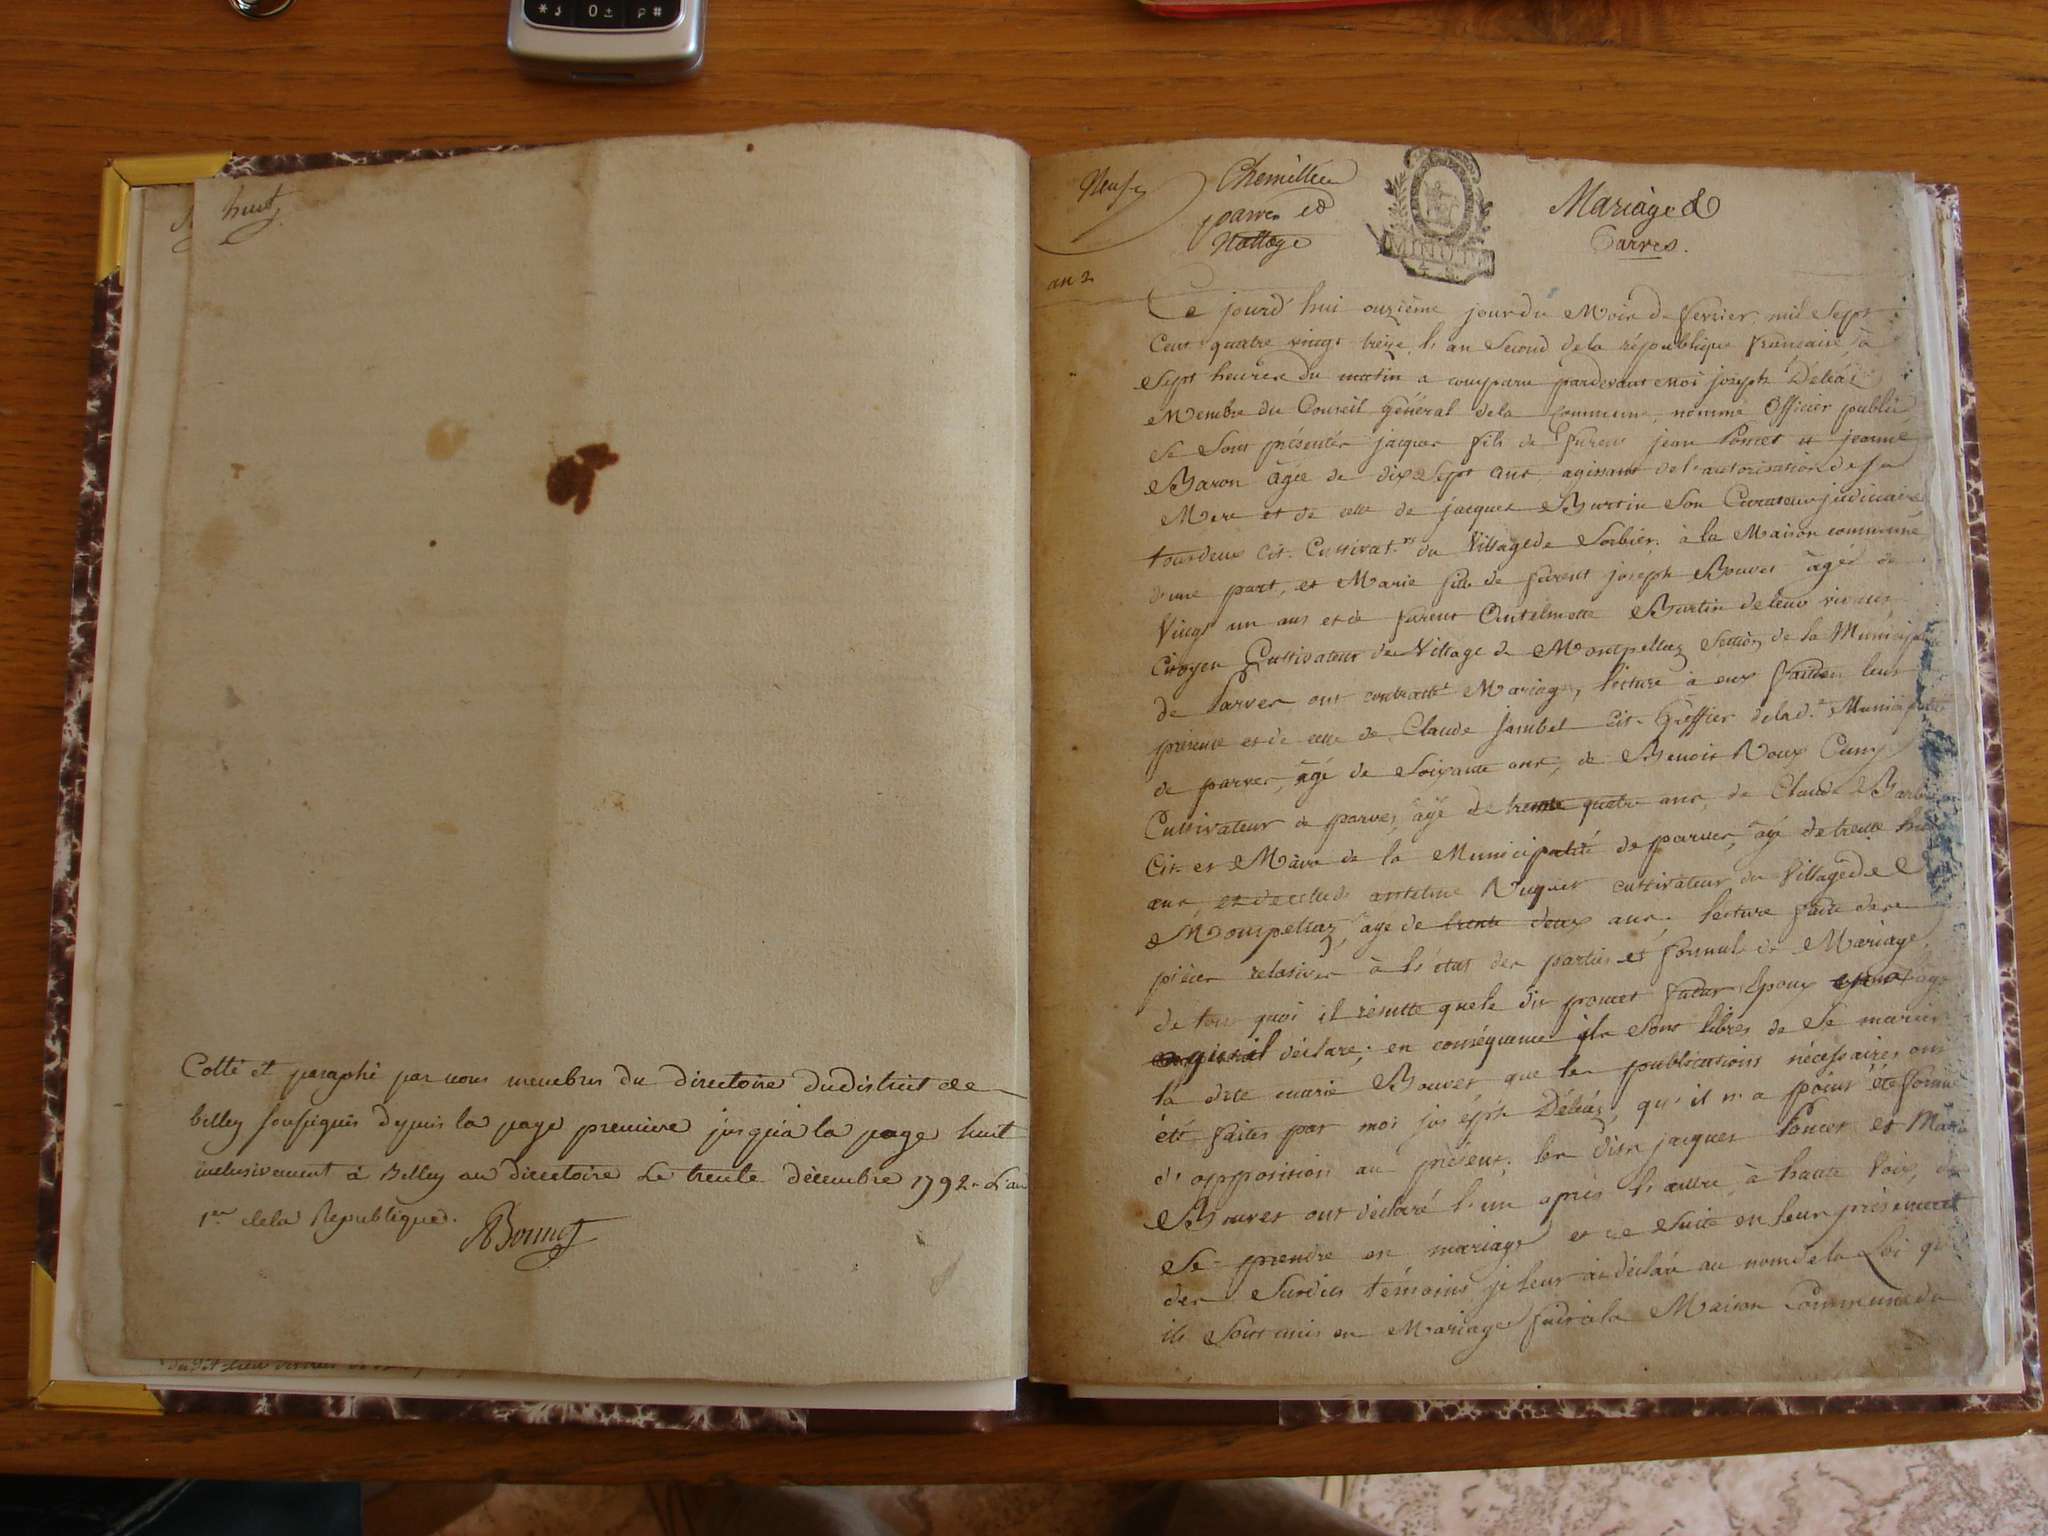 huit
Cotté et paraphé par nous membres du directoire du district de
belley soussignés depuis la page premiere jusqu'a la page huit
inclusivement à Belley au directoire Le trente décembre 1792. L'an
1er de la Republique.
Neuf
parves et
Nattage
MINUTE
Mariage de
Parves.
an 2
Ce jourd'hui onzième jour du Mois de fevrier mil Sept
Cent quatre vingt treize l'an Second de la république francaise, à
Sept heures du matin a comparu pardevant moi joseph
Membre du Conseil général de la Commune, nommé Officier public
Se Sont présentés jacques fils de jean Poncet et jeanne
Baron âgée de dix Sept ans agissant de l'autorisation de sa
Mere et de celle de jacques Burtin Son Curateur judiciaire
tous deux cit. Cultivat.rs du Village de Sorbier à la Maison commune
d'une part, et Marie de joseph Bouvet âgé de
Vingt un ans et de Burtin de leur vivant
Citoyen Cultivateur du Village de Montpellaz Section de la Municipalité
de Parves ont contracté Mariage, lecture à eux faite en leur
présence et de celle de Claude Jambet Cit. Greffier de la d.e Municipalité
de parves, âgé de Soixante ans, de Benoit Roux
Cultivateur de parves, âgé de trente quatre ans, de Claude
Cit. et Maire de la Municipalité de parves, âgé de trente
ans, et de celle de antelme cultivateur du Village de
Montpellaz, âgé de trente deux ans. lecture faite des
pièces relatives à l'état des parties et formule de Mariage,
de tous quoi il résulte que le dit poncet futur Epoux
qu'il déclare; en conséquence ils Sont libres de Se marier
la dite marie Bouvet que les publications nécessaires ont
été faites par moi joseph qu'il n'a point été formé
d'opposition au présent; les dits jacques Poncet et Marie
Bouvet ont déclaré l'un après l'autre, à haute Voix,
Se prendre en mariage et de Suite en leur présence et
des Susdits témoins je leur ai déclaré au nom de la Loi qu
ils Sont unis en Mariage fait à la Maison Commune du